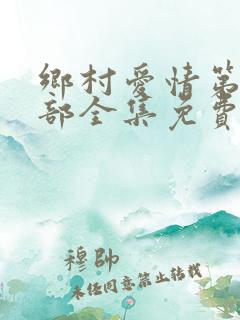 鄉村愛情第
部全集免費
穆帥
未经同意禁止转载